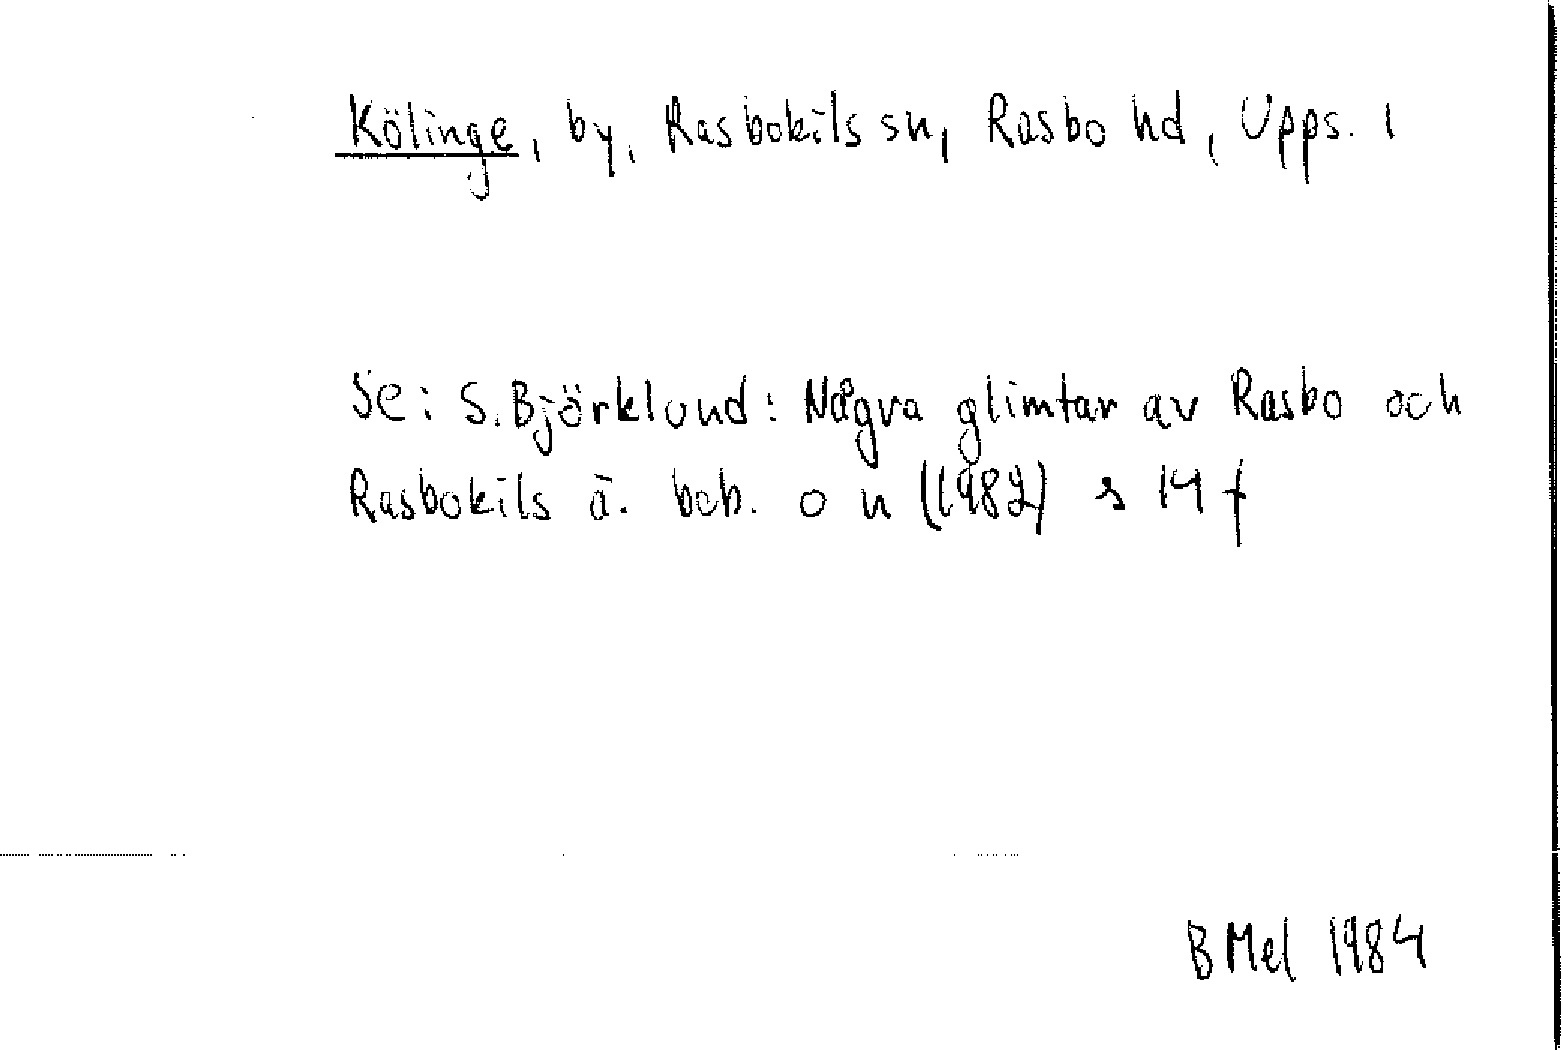 Kölinge, by, Rasbokils sn, Rasbo hd, Upps. l
Se: S. Björklund: Några glimtar av Rasbo och
Rasbokils ä. beb. o n (1982) s 14 f
B Mel 1984